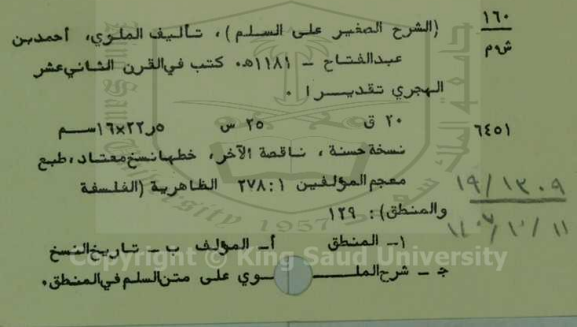 ١٦٠
ش٠م
(الشرح الصغير على السلم)، تأليف الملوي، أحمدبن
عبدالفتاح - ١١٨١ه٠ كتب في القرن الثاني عشر
الهجري تقديرا ٠
٢٠ ق ٢٥ س ٥ر٢٢×١٦سم
٦٤٥١
نسخة حسنة، ناقصة الآخر، خطها نسخ معتاد، طبع
معجم المؤلفين ١: ٢٧٨ الظاهرية (الفلسفة
والمنطق): ١٢٩
١٩/١٣٠٩
١- المنطق أ- المؤلف ب- تاريخ النسخ
ج - شرح الملـــوي على متن السلم في المنطق٠
Copyright © King Saud University
1957